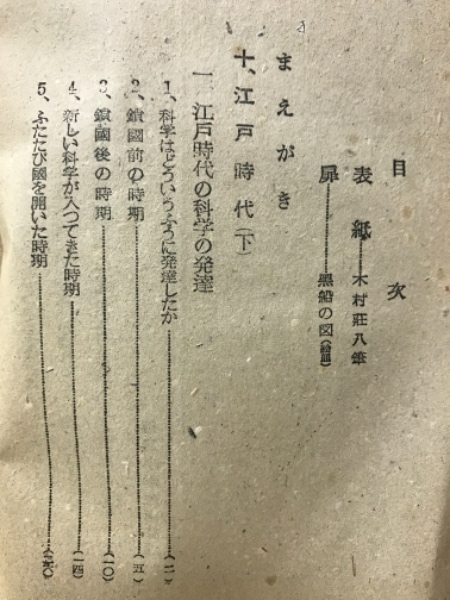 目次
表紙……木村莊八筆
扉……黒船の図
まえがき
十、江戸時代(下)
一 江戸時代の科学の発達
1、科学はどういうふうに発達したか……(一)
2、鎖國前の時期……(五)
3、鎖國後の時期……(一〇)
4、新しい科学が入つてきた時期……(一四)
5、ふたたび國を開いた時期……(二六)